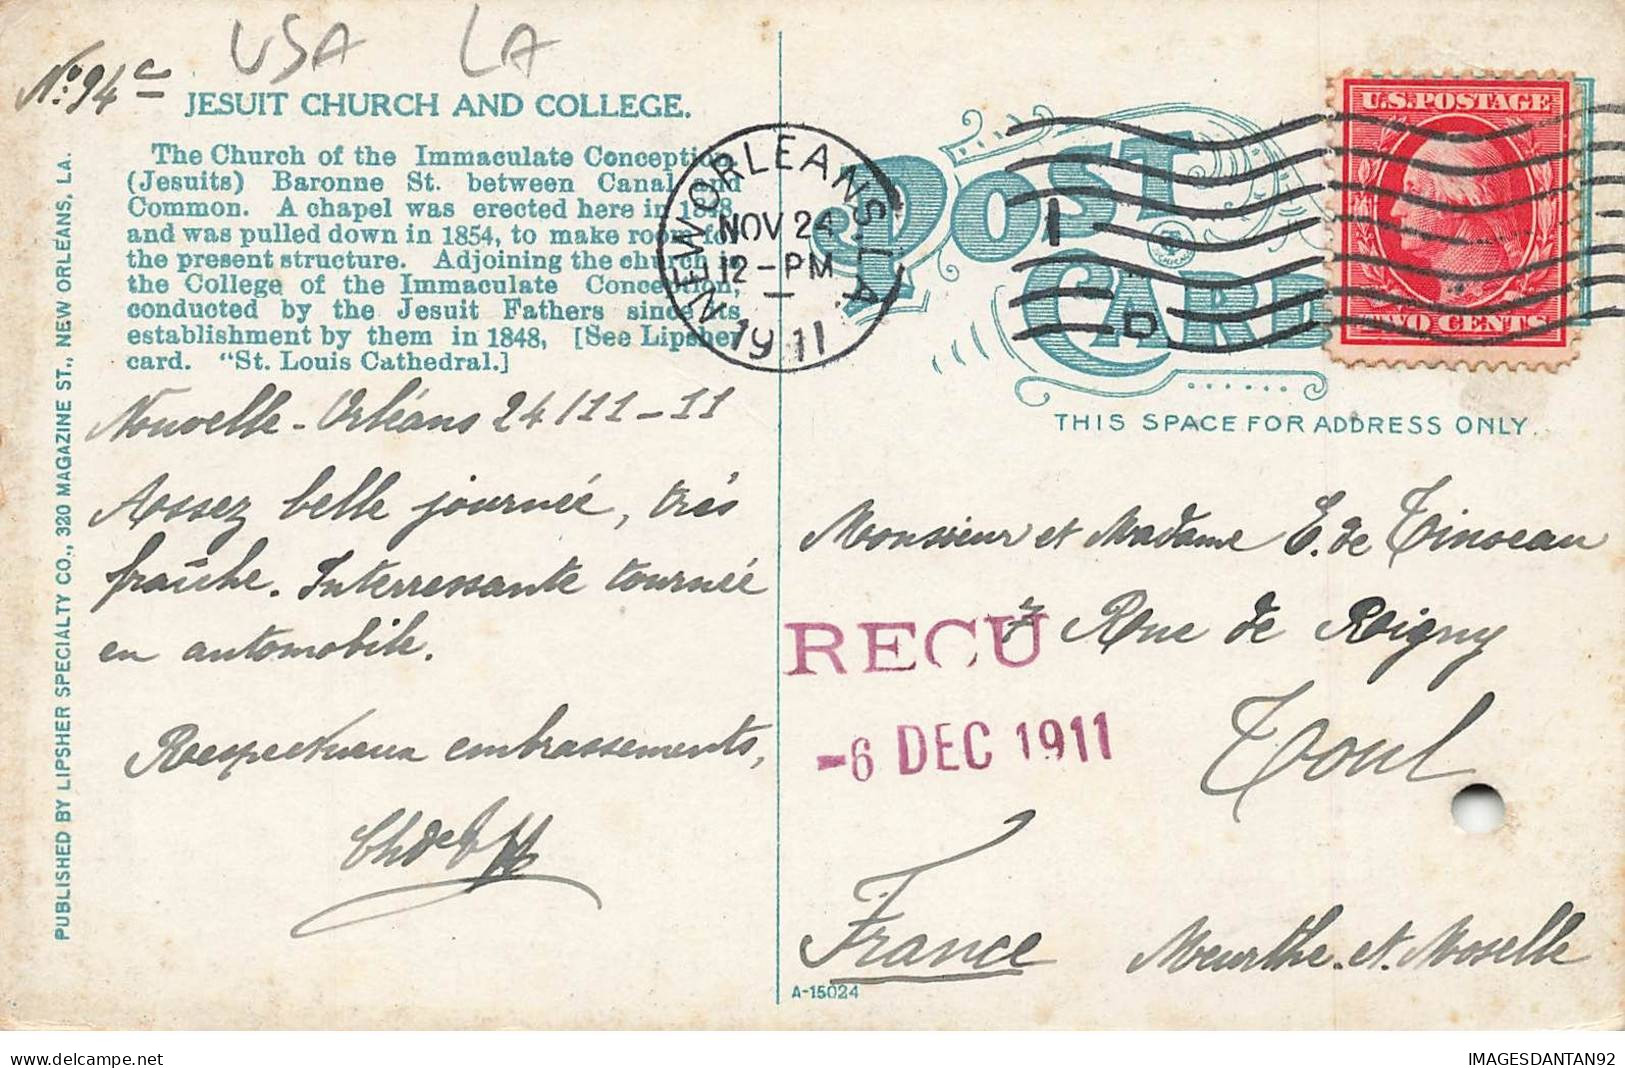 USA LA
No. 94 c
JESUIT CHURCH AND COLLEGE.
The Church of the Immaculate Conception
(Jesuits) Baronne St. between Canal and
Common. A chapel was erected here in 1848,
and was pulled down in 1854, to make room for
the present structure. Adjoining the church is
the College of the Immaculate Conception,
conducted by the Jesuit Fathers since its
establishment by them in 1848, [See Lipsher
card. "St. Louis Cathedral.]
PUBLISHED BY LIPSHER SPECIALTY CO., 320 MAGAZINE ST., NEW ORLEANS, LA.
Nouvelle-Orléans 24/11-11
Assez belle journée, très
fraîche. Interressante tournée
en automobile.
Respectueux embrassements,
NEW ORLEANS, LA.
NOV 24
12-PM
1911
1
D
POST
CARD
U.S. POSTAGE
TWO CENTS
THIS SPACE FOR ADDRESS ONLY.
Monsieur et Madame E. de Tinseau
7 Rue de Rigny
RECU
-6 DEC 1911
Toul
France
Meurthe-et-Moselle
A-15024
IMAGESDANTAN92